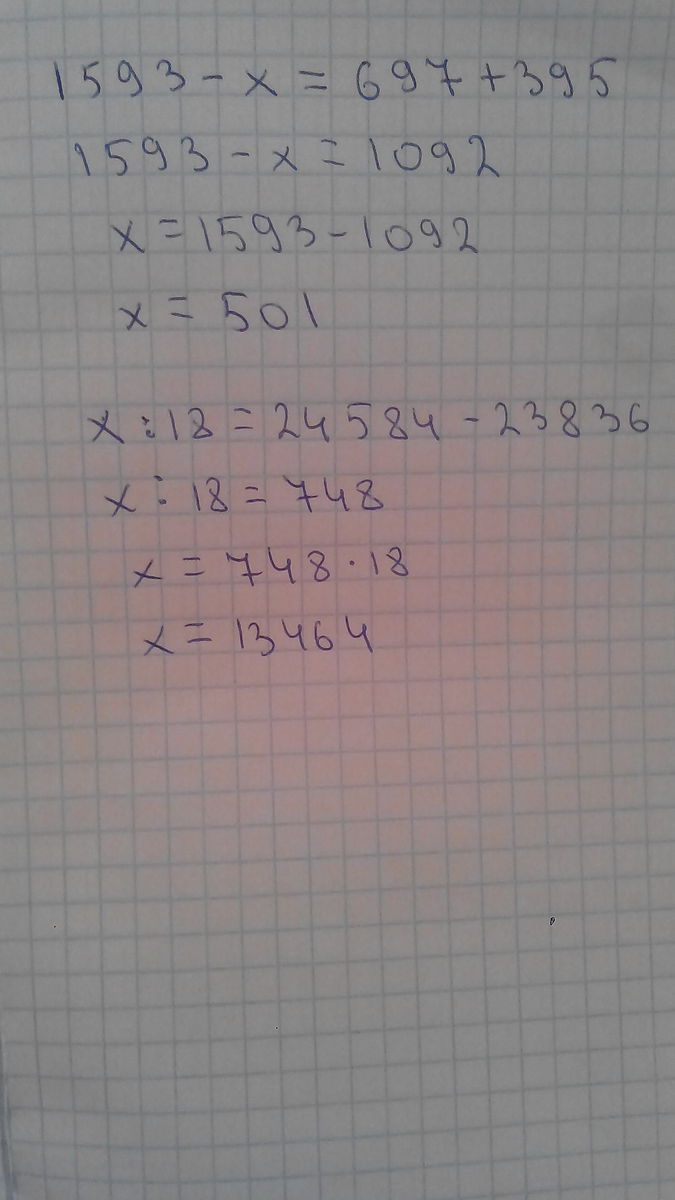 1593 - x = 697 + 395
1593 - x = 1092
x = 1593 - 1092
x = 501
x : 18 = 24584 - 23836
x : 18 = 748
x = 748 · 18
x = 13464